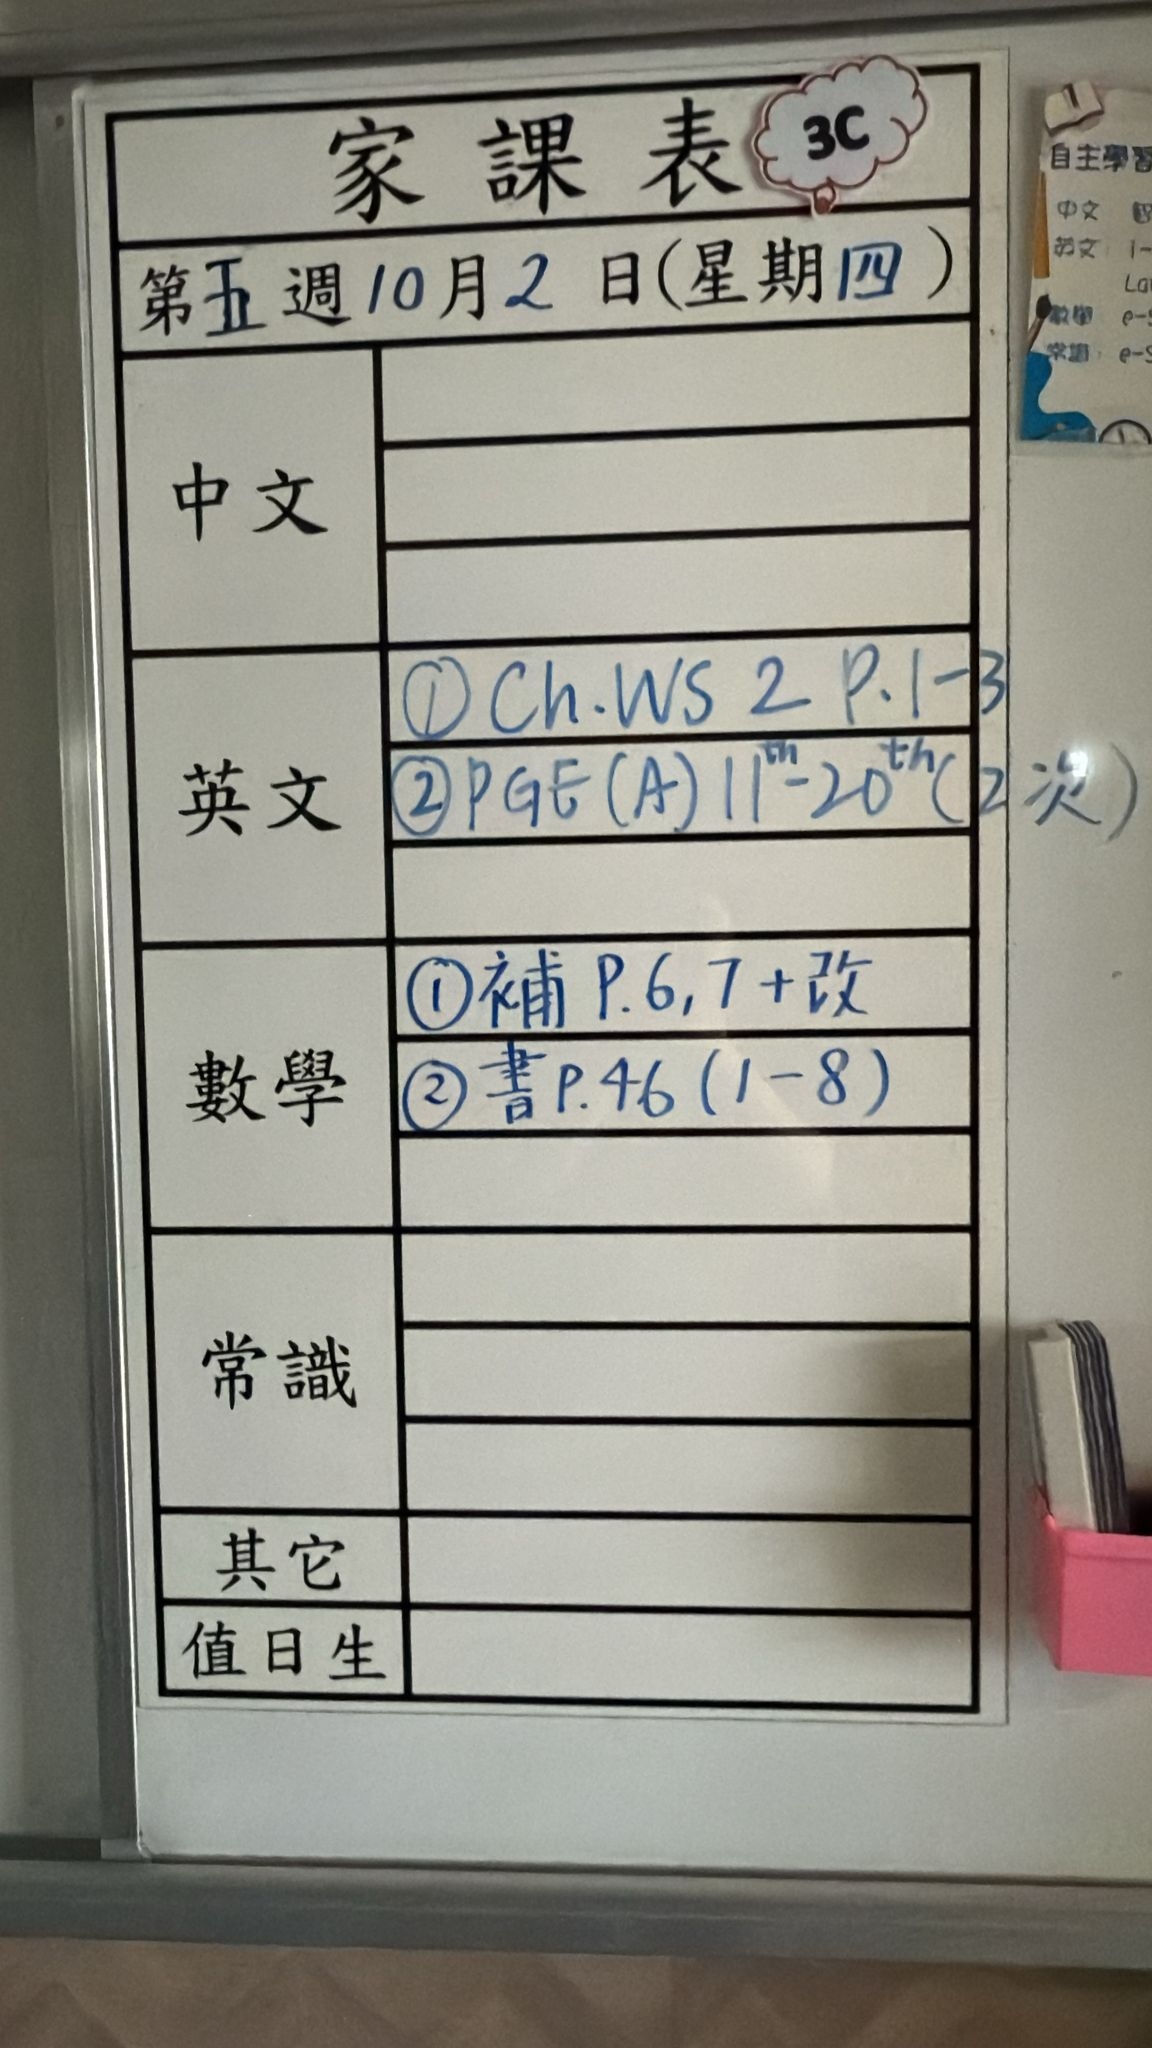 家課表 3C
第五週10月2日(星期四)
中文
英文
①Ch.WS 2 P.1-3
②PGE(A)11th-20th(2次)
數學
①補 P.6,7+改
②書P.46(1-8)
常識
其它
值日生
自主學習
中文
英文: 1-
數學 e-S
常識: e-S